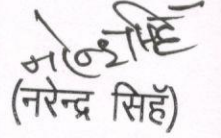 नरेन्द्र सिंह
(नरेन्द्र सिहँ)